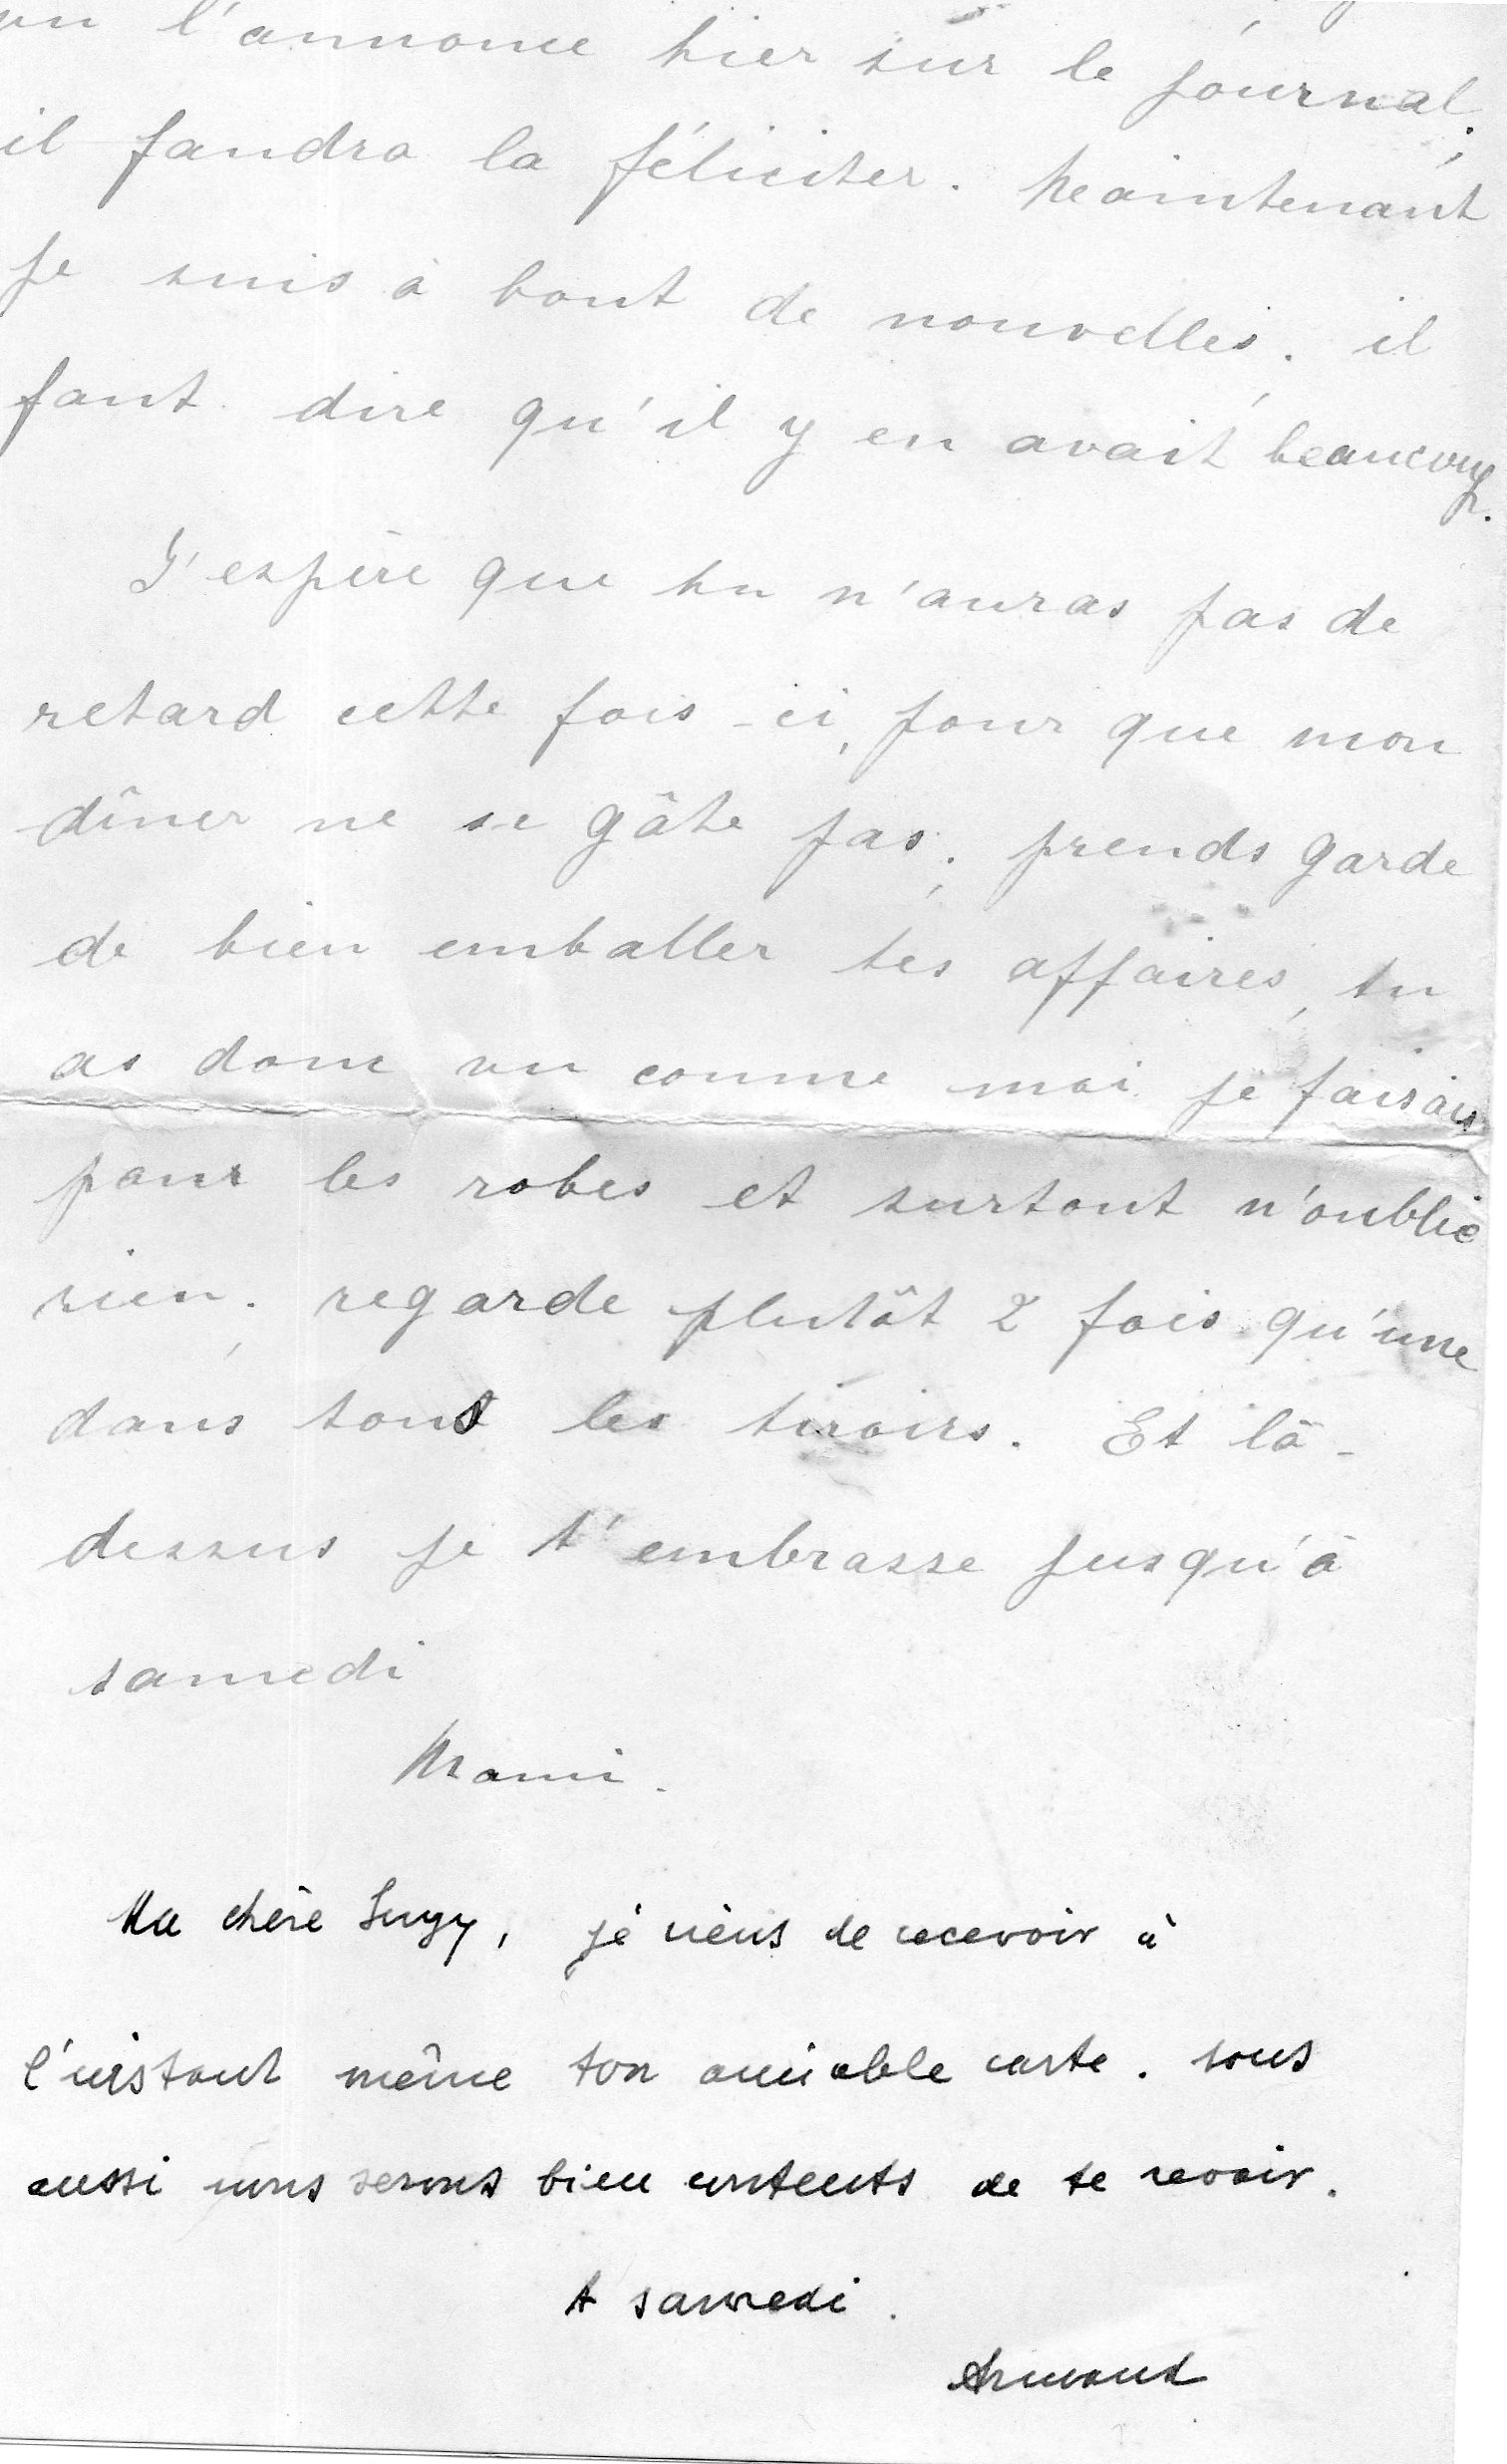 vu l'annonce hier sur le journal;
il faudra la féliciter. Maintenant
je suis à bout de nouvelles. il
faut dire qu'il y en avait beaucoup.
J'espère que tu n'auras pas de
retard cette fois-ci, pour que mon
dîner ne se gâte pas; prends garde
de bien emballer tes affaires, tu
as donc vu comme moi je faisais
pour les robes et surtout n'oublie
rien; regarde plutôt 2 fois qu'une
dans tous les tiroirs. Et là-
dessus je t'embrasse jusqu'à
samedi
Mami.
Ma chère Suzy, je viens de recevoir à
l'instant même ton aimable carte. Nous
aussi nous serons bien contents de te revoir.
A samedi.
Armand